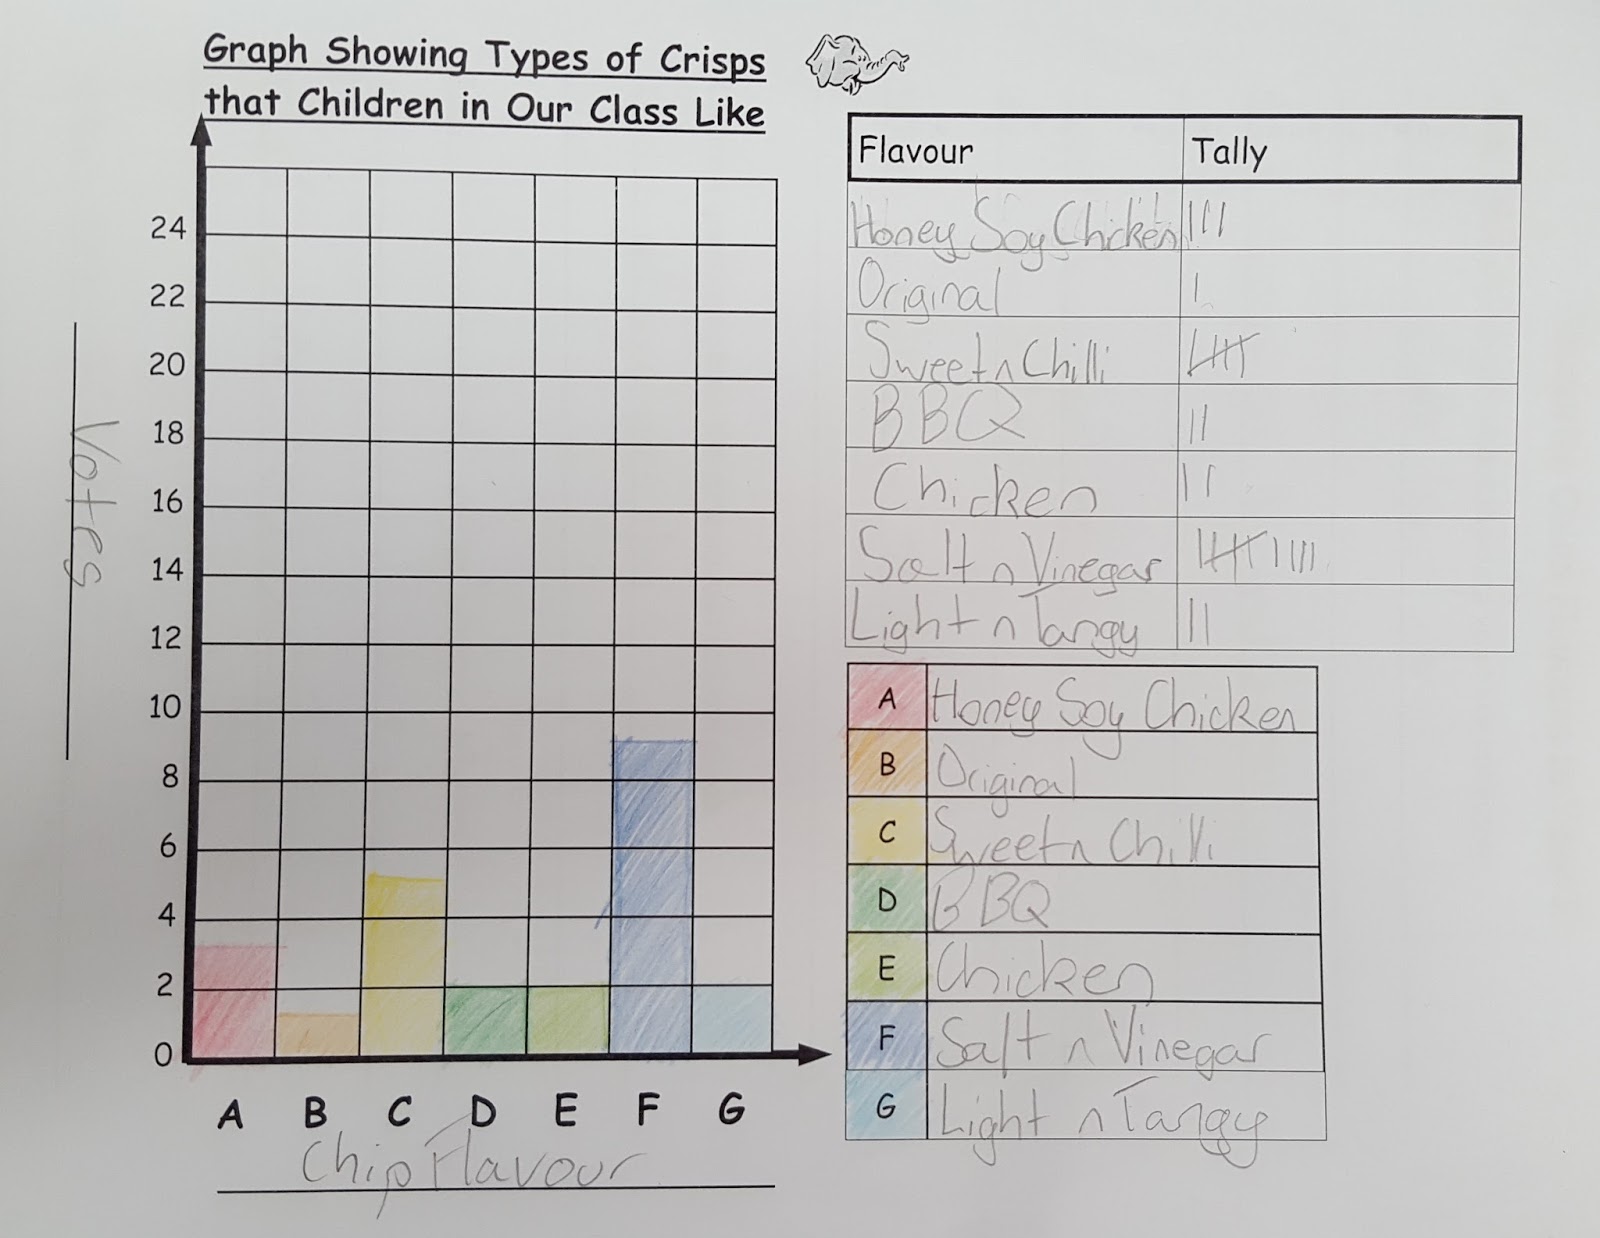 Graph Showing Types of Crisps
that Children in Our Class Like
24
22
20
18
16
14
12
10
8
6
4
2
0
Votes
A B C D E F G
Chip Flavour
Flavour Tally
Honey Soy Chicken
Original
Sweet n Chilli
BBQ
Chicken
Salt n Vinegar
Light n Tangy
A Honey Soy Chicken
B Original
C Sweet n Chilli
D BBQ
E Chicken
F Salt n Vinegar
G Light n Tangy